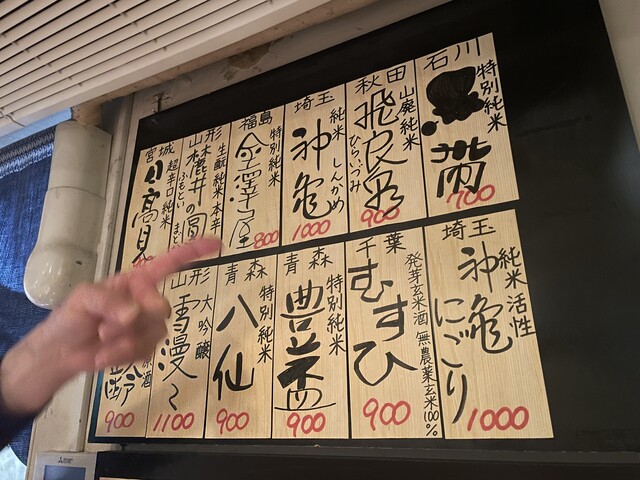 石川
特別純米
黒帯
700
秋田
山廃純米
飛良泉
ひらいづみ
900
埼玉
純米
しんかめ
神亀
1000
福島
特別純米
金澤屋
800
山形
生酛純米本辛
木麓井の圓
ふもとい
宮城
超辛口純米
日高見
埼玉
純米活性
神亀
にごり
1000
千葉
発芽玄米酒 無農薬玄米100%
むすひ
900
青森
特別純米
豊盃
900
青森
特別純米
八仙
900
山形
大吟醸
雪漫々
1100
原酒
鈴
900